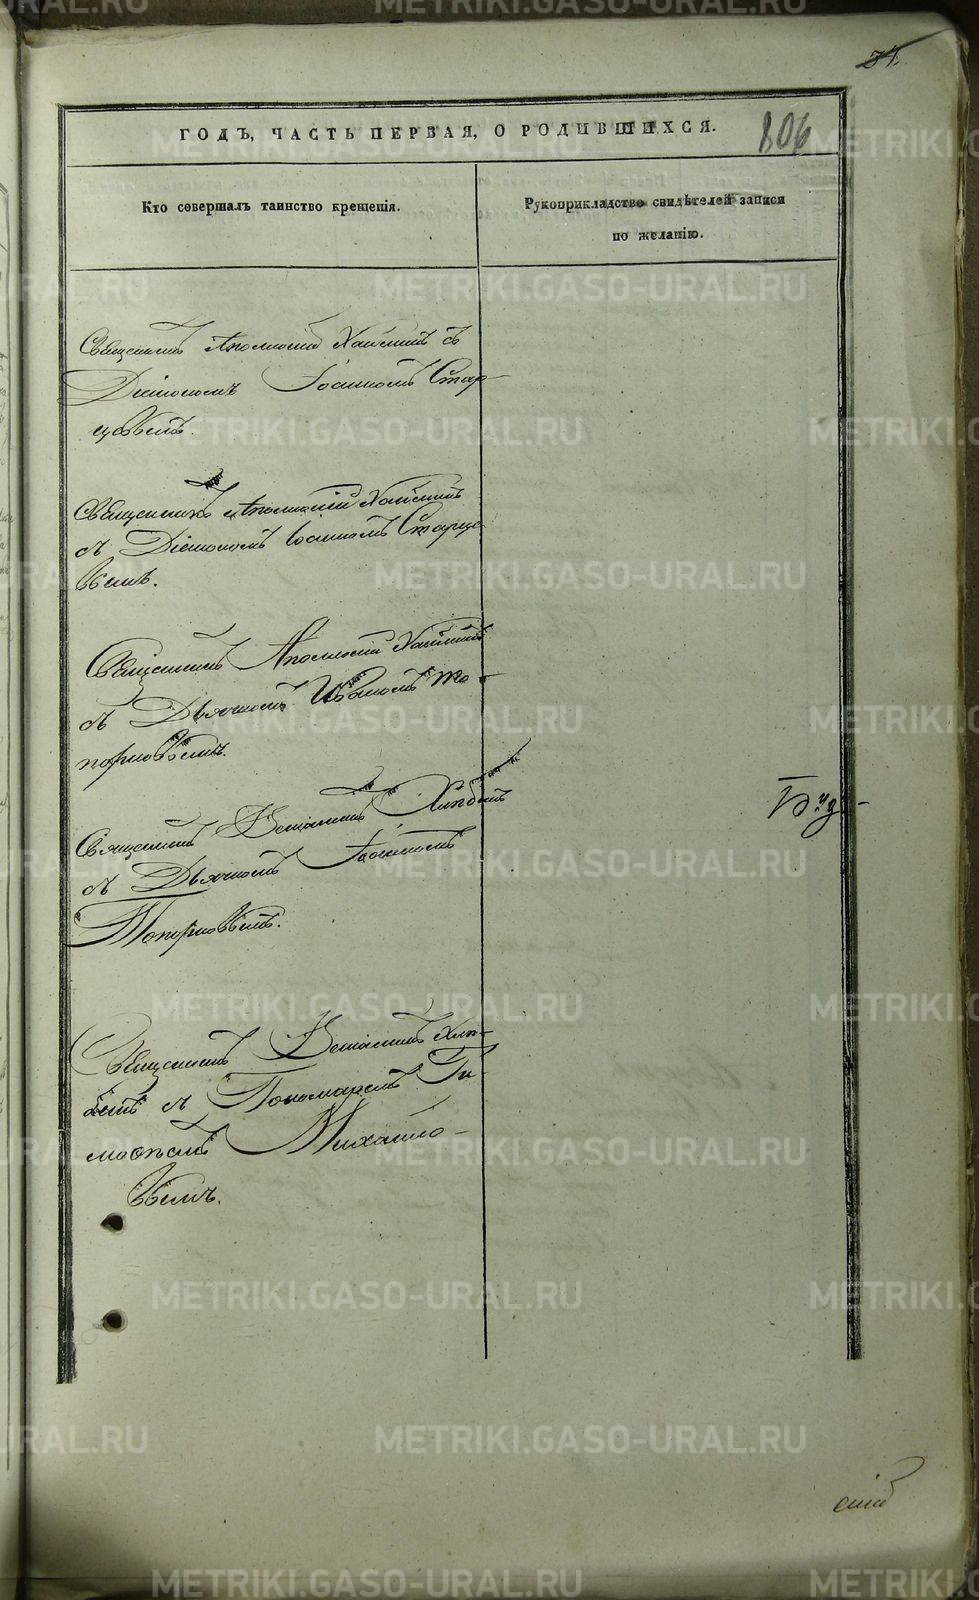 31.
ГОДЪ, ЧАСТЬ ПЕРВАЯ, О РОДИВШИХСЯ.
806
Кто совершалъ таинство крещенія.
Рукоприкладство свидѣтелей записи
по желанію.
Священникъ Аполлоній Хайминъ съ
Діакономъ Іоанномъ Стар-
цовымъ.
Священникъ Аполлоній Хайминъ
съ Діакономъ Іоанномъ Старцо
вымъ.
Священникъ Аполлоній Хайминъ
съ Дьячкомъ Иваномъ То-
порковымъ.
Священникъ Веніаминъ
съ Дьячкомъ Іоанномъ
Топорковымъ.
Священникъ Веніаминъ
съ Пономаремъ Ти-
моѳеемъ Михайло-
вымъ.
METRIKI.GASO-URAL.RU